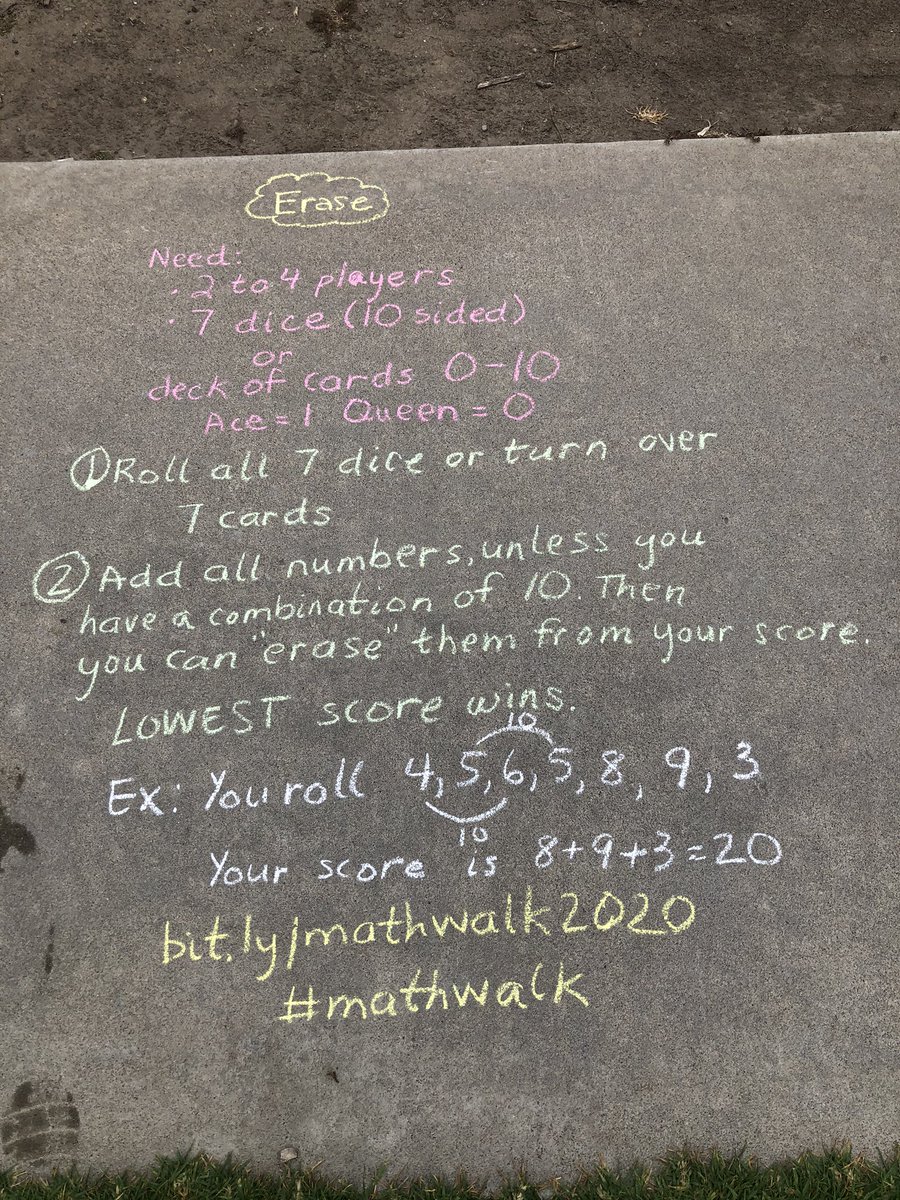 Erase
Need:
· 2 to 4 players
· 7 dice (10 sided)
or
deck of cards 0-10
Ace = 1 Queen = 0
① Roll all 7 dice or turn over
7 cards
② Add all numbers, unless you
have a combination of 10. Then
you can "erase" them from your score.
LOWEST score wins.
10
Ex: You roll 4, 5, 6, 5, 8, 9, 3
10
Your score is 8+9+3=20
bit.ly/mathwalk2020
#mathwalk